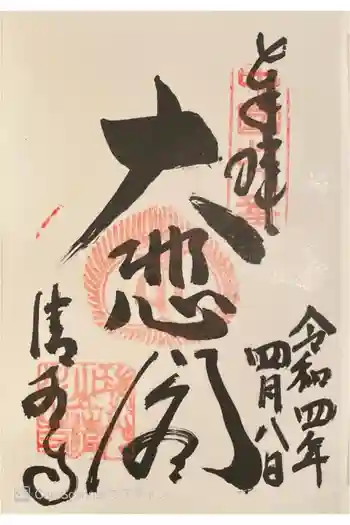 奉拝
令和四年
四月八日
大悲閣
清水寺